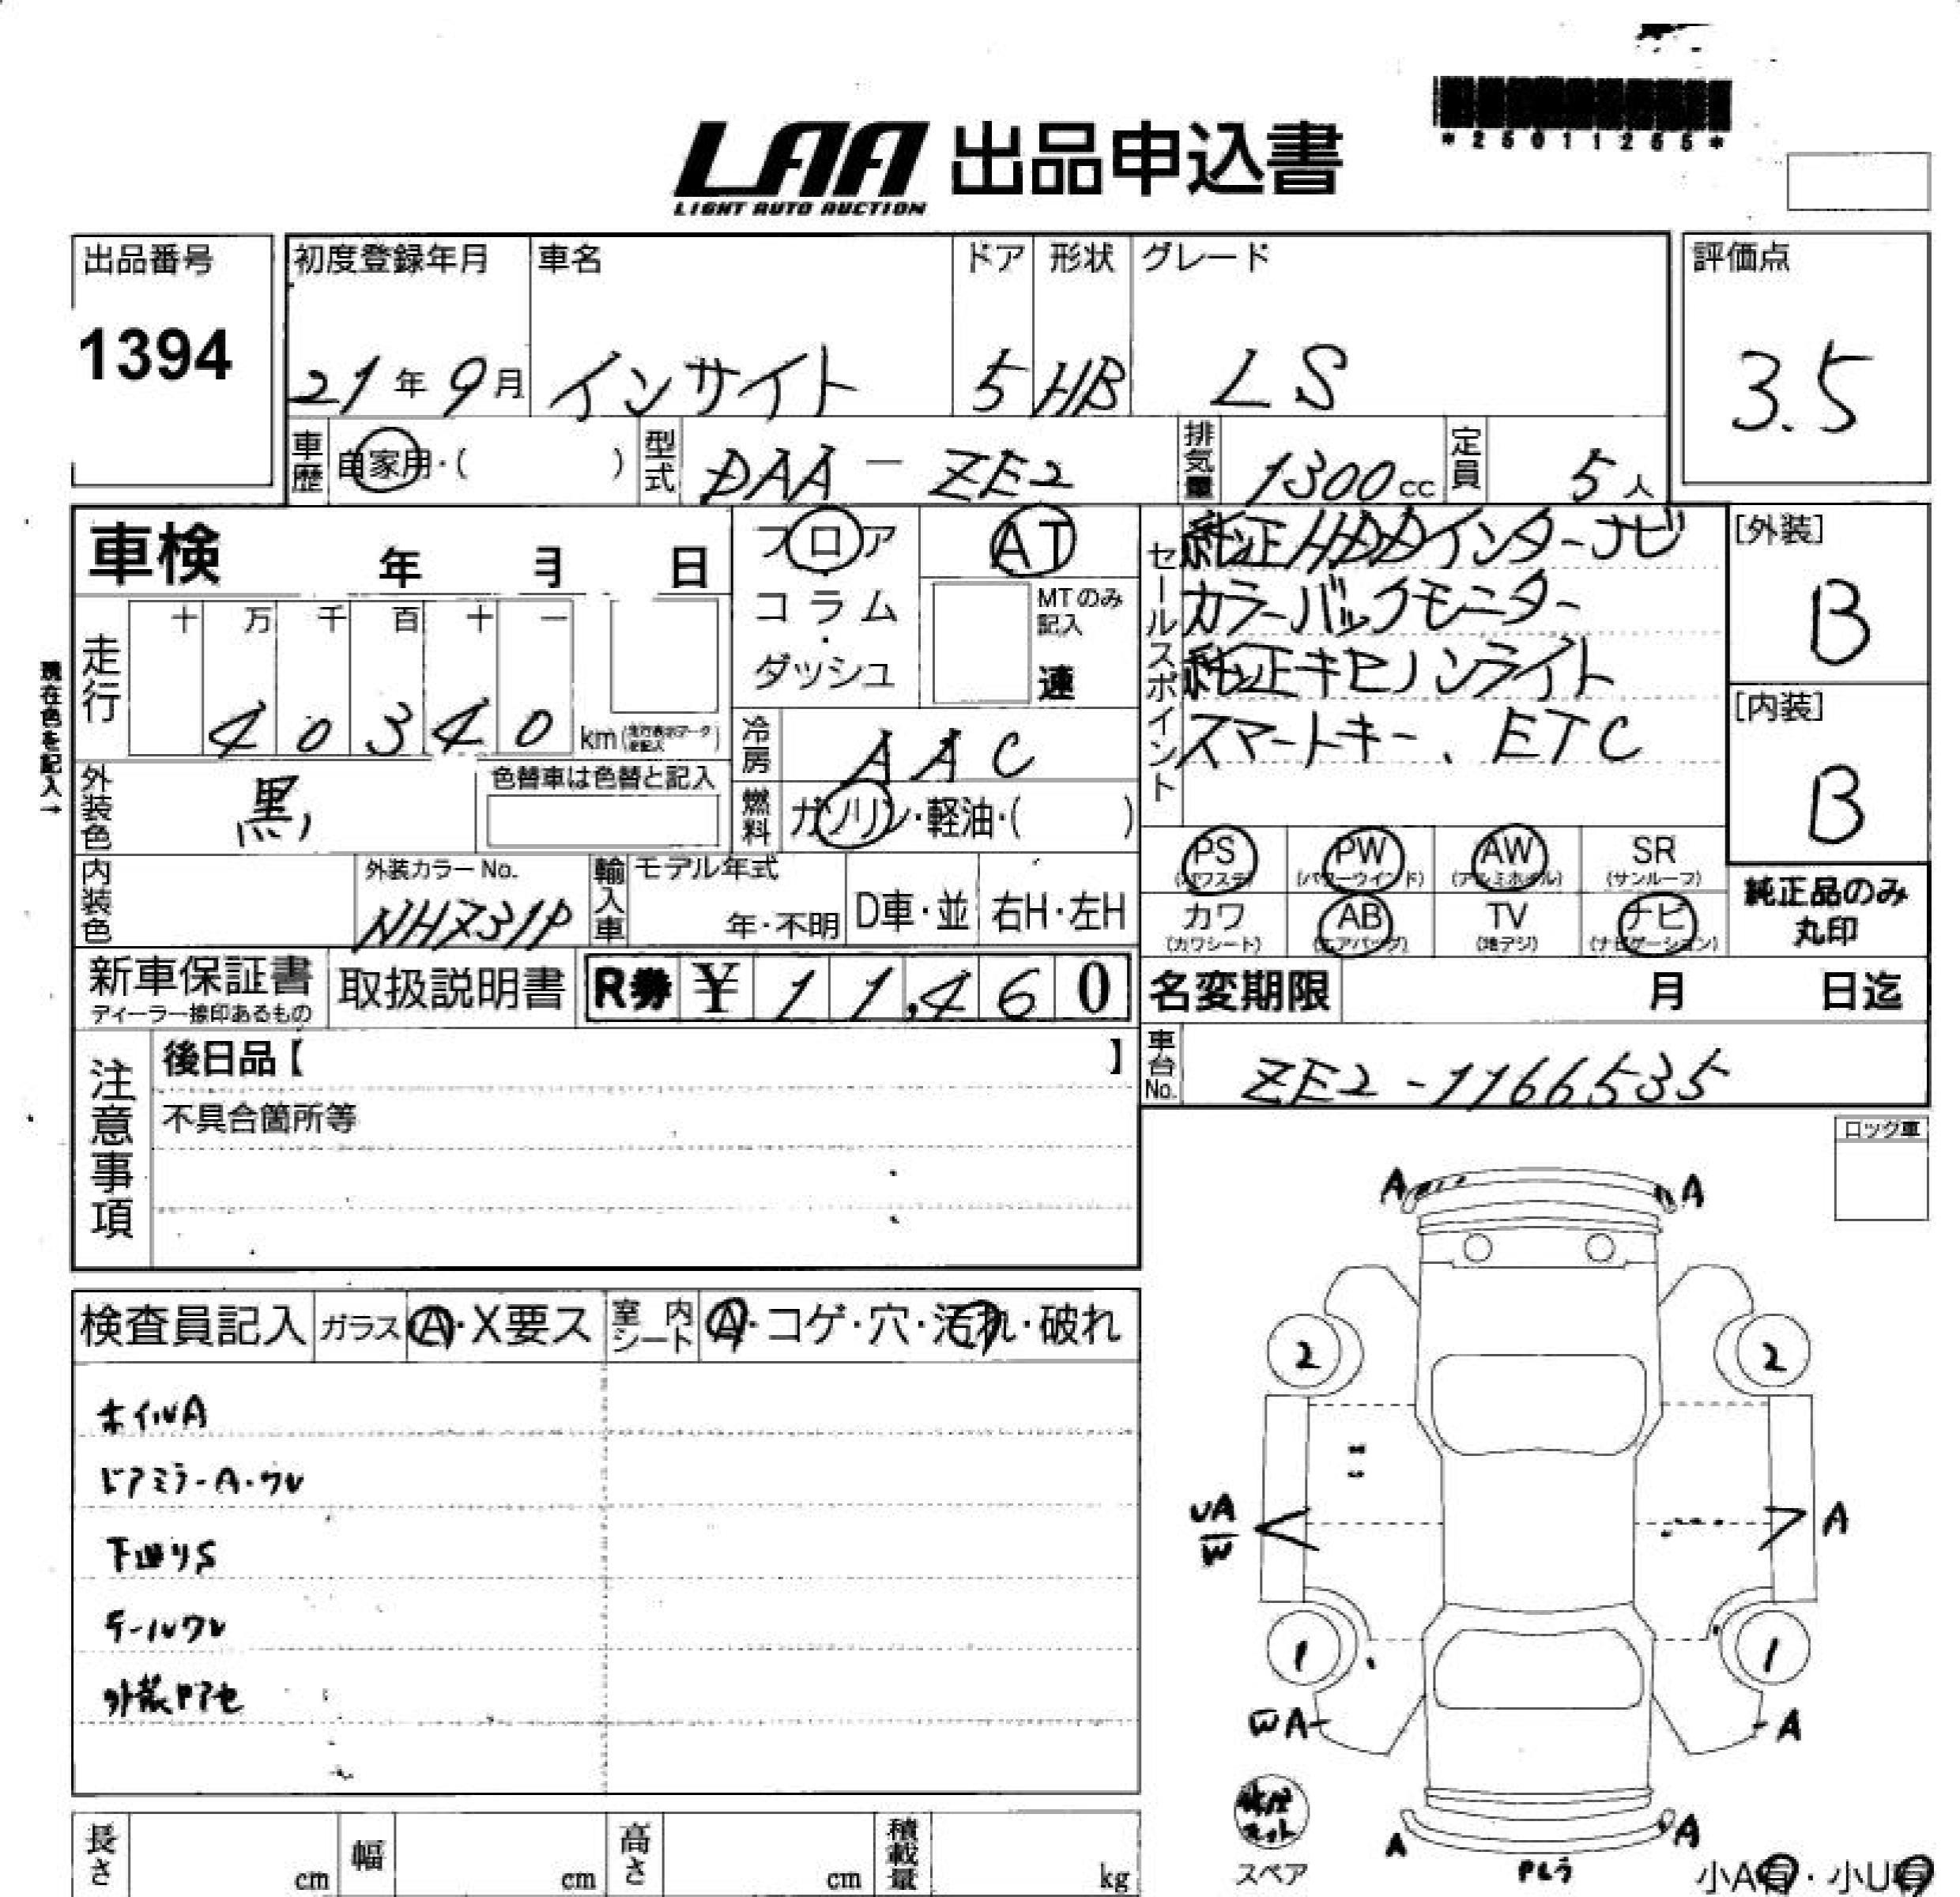 *25011265*
LAA 出品申込書
LIGHT AUTO AUCTION
出品番号
1394
初度登録年月
21年 9月
車名
インサイト
ドア
5
形状
HB
グレード
LS
評価点
3.5
車歴
自家用・( )
型式
DAA - ZE2
排気量
1300cc
定員
5人
車検 年 月 日
フロア
・
コラム
・
ダッシュ
AT
MTのみ
記入
速
セールスポイント
純正HDDインターナビ
カラーバックモニター
純正キセノンライト
スマートキー、ETC
[外装]
B
[内装]
B
現在色を記入→
走行
十 万 千 百 十 一
4 0 3 4 0 km
冷房
AAC
外装色
黒
色替車は色替と記入
燃料
ガソリン・軽油・( )
PS PW AW SR
(パワステ) (パワーウインド) (アルミホイル) (サンルーフ)
カワ AB TV ナビ
(カワシート) (エアバッグ) (地デジ) (ナビゲーション)
純正品のみ
丸印
内装色
外装カラーNo.
NH731P
輸入車
モデル年式
年・不明
D車・並
右H・左H
新車保証書
ディーラー捺印あるもの
取扱説明書
R券 ¥ 11,460
名変期限 月 日迄
注意事項
後日品【 】
不具合箇所等
車台No.
ZE2-1166535
ロック車
検査員記入
ガラス
A・X要ス
室内シート
A・コゲ・穴・汚れ・破れ
ホイルA
ドアミラーA・ワレ
下廻りS
テールワレ
外装ドアモ
A A
2 2
UA
W
A
1 1
WA
A
スペア
A A
小A有・小U有
長さ cm
幅 cm
高さ cm
積載量 kg